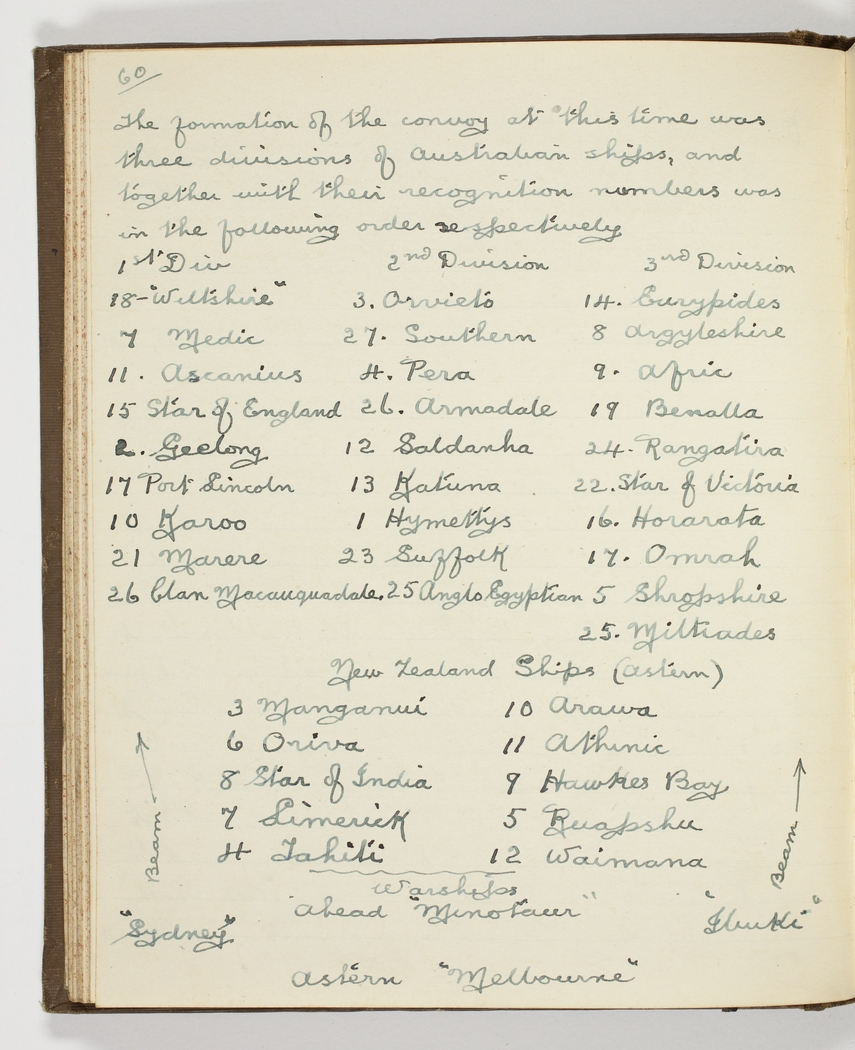 60
The formation of the convoy at this time was
three divisions of Australian ships, and
together with their recognition numbers was
in the following order respectively
1st Div 2nd Division 3rd Division
18-"Wiltshire" 3. Orvieto 14. Eurypides
7 Medic 27. Southern 8 Argyleshire
11. Ascanius 4. Pera 9. Afric
15 Star of England 26. Armadale 19 Benalla
2. Geelong 12 Saldanha 24. Rangatira
17 Port Lincoln 13 Katuna 22. Star of Victoria
10 Karoo 1 Hymettys 16. Horarata
21 Marere 23 Suffolk 17. Omrah
26 Clan Macauquadale. 25 Anglo Egyptian 5 Shropshire
25. Miltiades
New Zealand Ships (Astern)
3 Manganui 10 Arawa
6 Oriva 11 Athinic
8 Star of India 9 Hawkes Bay
7 Limerick 5 Ruapshu
4 Tahiti 12 Waimana
Beam
Beam
Warships
Ahead "Minotaur"
"Sydney" "Ibuki"
Astern "Melbourne"